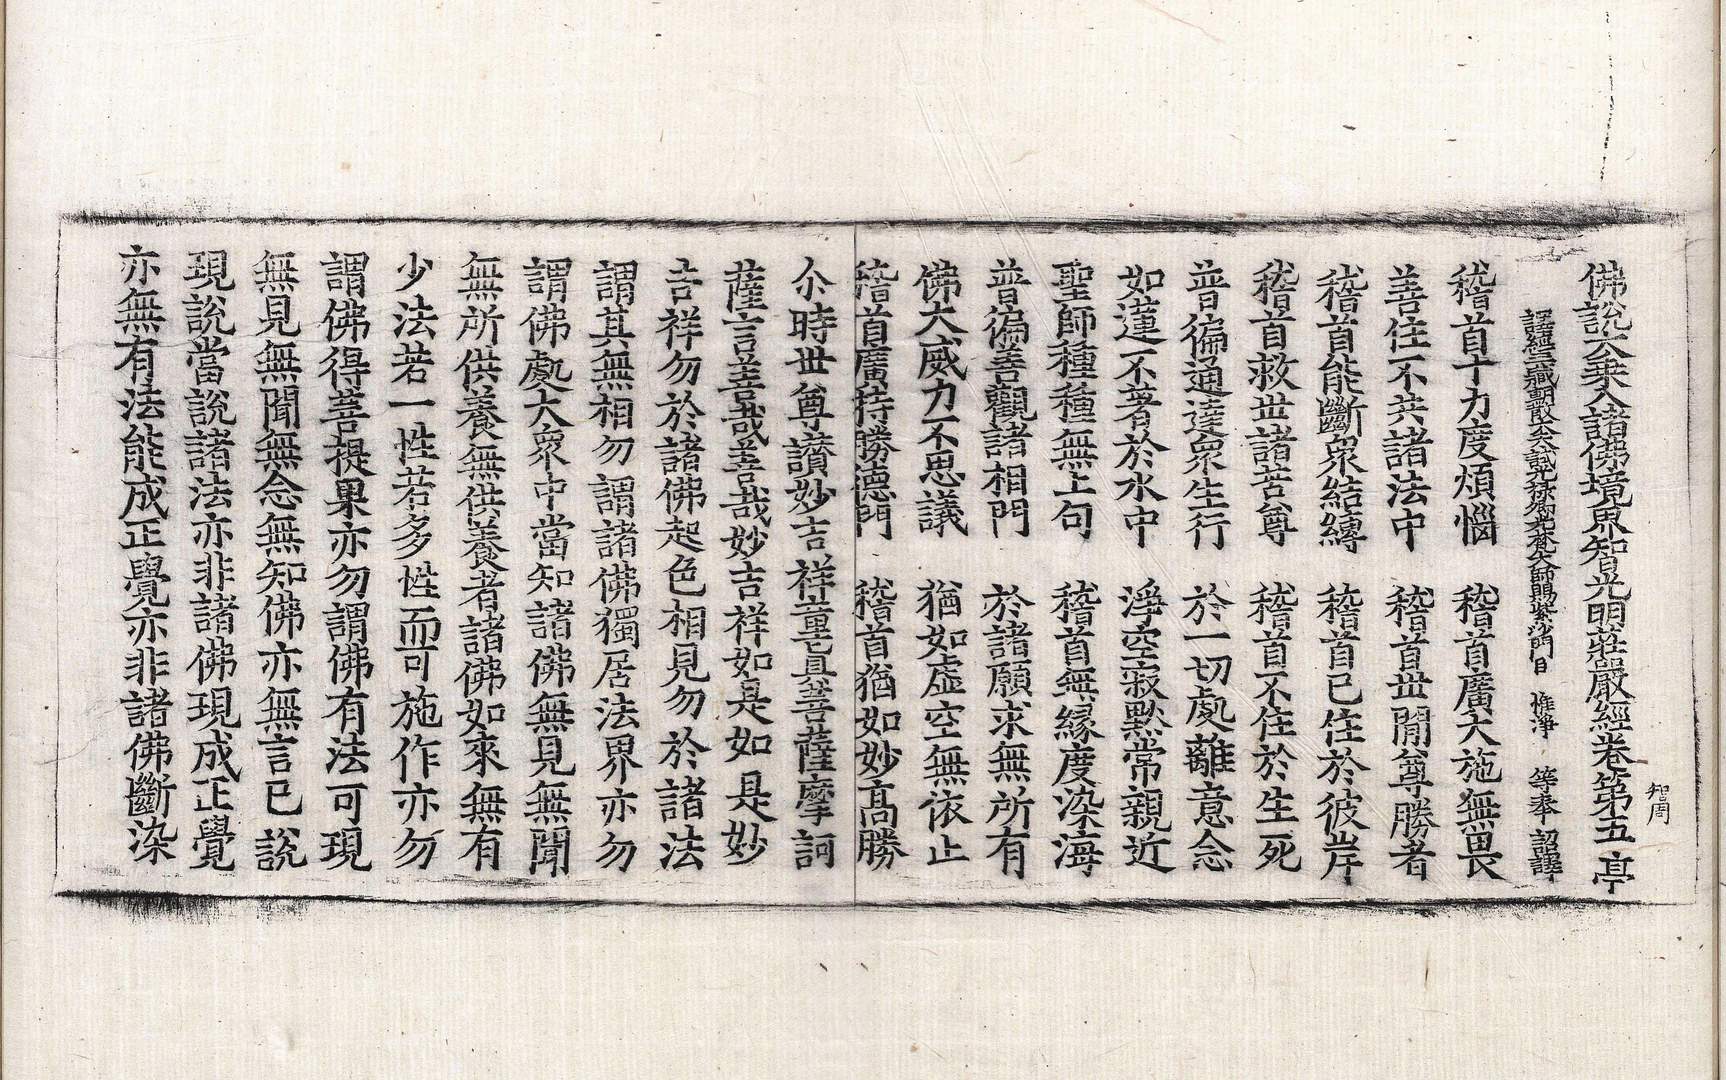 佛說入乘入諸佛境界智光明莊嚴經卷第五 亭
譯經三藏朝散大夫試光祿卿光梵大師賜紫沙門臣 惟淨 等奉 詔譯
智周
稽首十力度煩惱 稽首廣大施無畏
善住不共諸法中 稽首世間尊勝者
稽首能斷衆結縛 稽首已住於彼岸
稽首救世諸苦尊 稽首不住於生死
普徧通達衆生行 於一切處離意念
如蓮不著於水中 淨空寂默常親近
聖師種種無上句 稽首無緣度染海
普徧善觀諸相門 於諸願求無所有
佛大威力不思議 猶如虛空無依止
稽首廣持勝德門 稽首猶如妙高勝
尒時世尊讚妙吉祥童真菩薩摩訶
薩言善哉善哉妙吉祥如是如是妙
吉祥勿於諸佛起色相見勿於諸法
謂其無相勿謂諸佛獨居法界亦勿
謂佛處大衆中當知諸佛無見無聞
無所供養無供養者諸佛如來無有
少法若一性若多性而可施作亦勿
謂佛得菩提果亦勿謂佛有法可現
無見無聞無念無知佛亦無言已說
現說當說諸法亦非諸佛現成正覺
亦無有法能成正覺亦非諸佛斷染